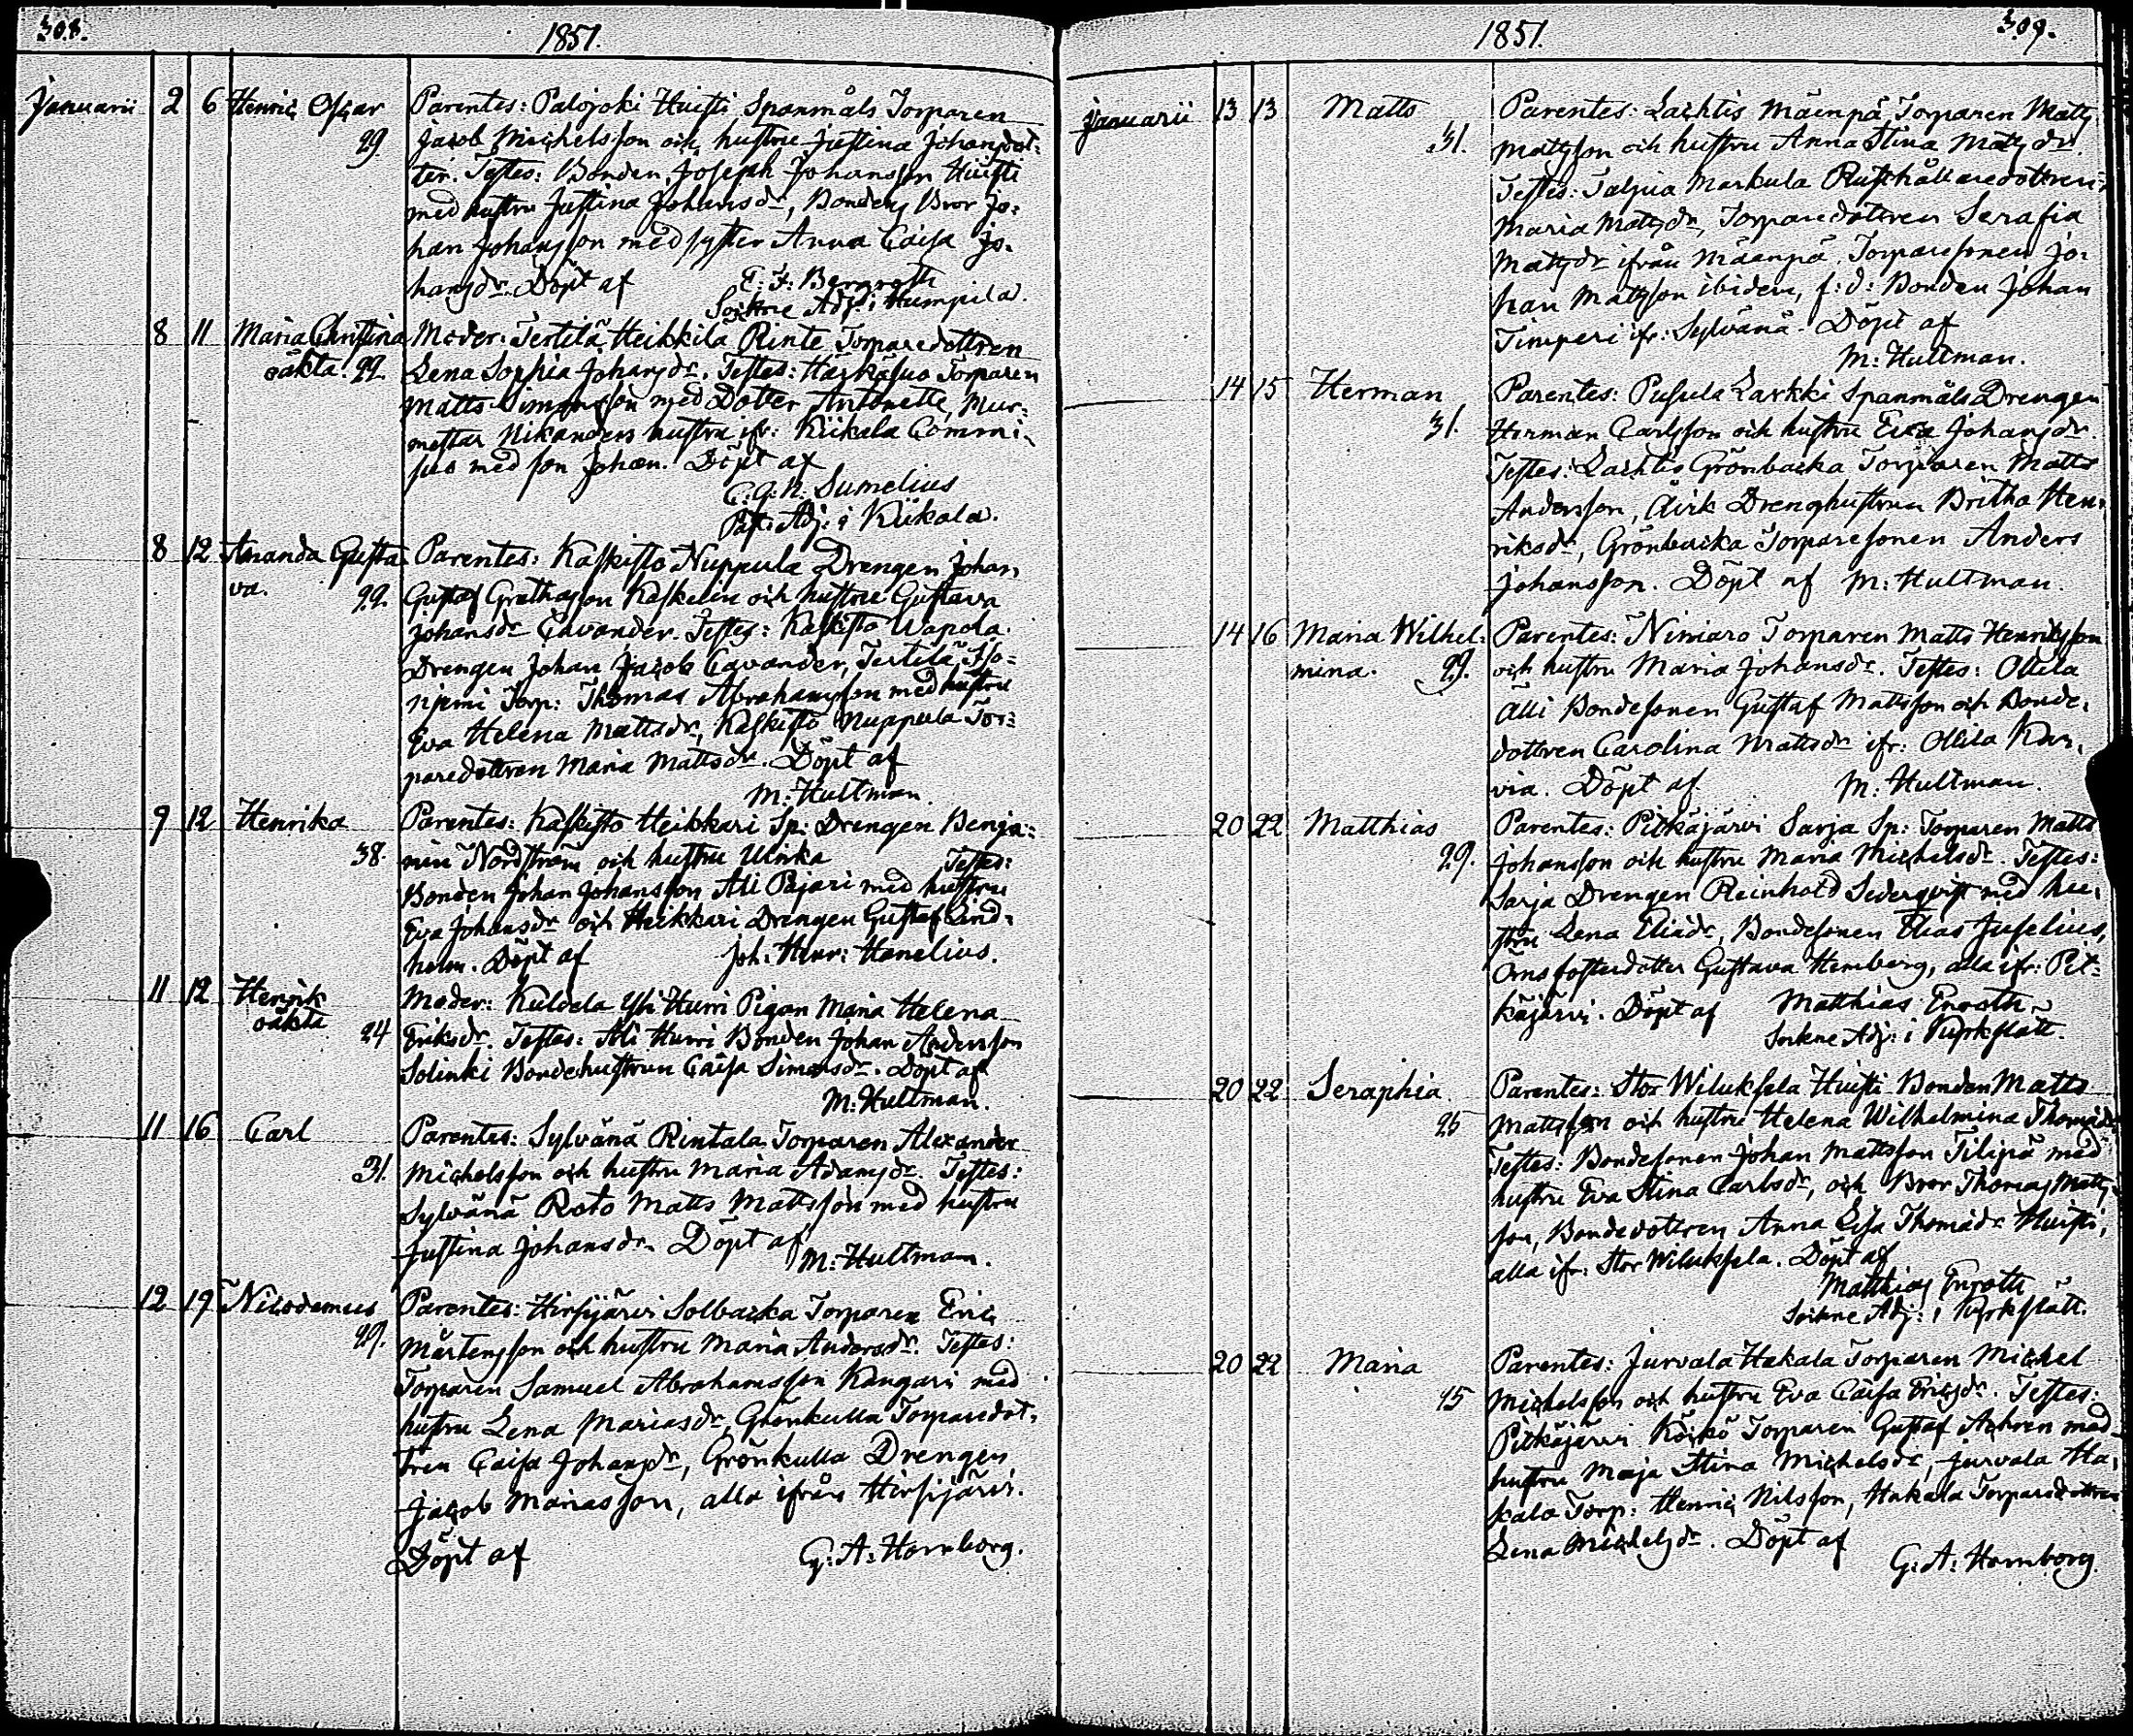 308.
1851.
Januarii 2 6 Henric Oscar Parentes: Palojoki Huisti Spanmåls Torparen
29. Jacob Michelsson och hustru Justina Johansdot-
ter. Testes: Bonden Joseph Johansson Huisti
med hustru Justina Johansdr, Bondens Bror Jo-
han Johansson med syster Anna Caisa Jo-
hansdr. Döpt af E: F: Bergroth
Sockne Adj: i Humpila.
8 11 Maria Christina Moder: Tertilä Heikkilä Rinte Torparedottren
oäkta. 22. Lena Sophia Johansdr. Testes: Härkäsuo Torparen
Matts Simonsson med Dotter Antonette, Mur-
mestar Nikanders hustru ifr: Kiikala Commi-
suo med son Johan. Döpt af
C: G: N: Sumelius
Past: Adj: i Kiikala.
8 12 Amanda Gusta- Parentes: Kaskisto Nuppula Drengen Johan
va. 29. Gustaf Grethasson Kaskelin och hustru Gustava
Johansdr Cavander. Testes: Kaskisto Uapola
Drengen Johan Jacob Cavander, Tertilä Iso-
njemi Torp: Thomas Abrahamsson med hustru
Eva Helena Mattsdr, Kaskisto Nuppula Tor-
paredottren Maria Mattsdr. Döpt af
M: Hultman.
9 12 Henrika Parentes: Kaskisto Heikkari Sp: Drengen Benja-
38. min Nordström och hustru Ulrika Testes:
Bonden Johan Johansson Ali Pajari med hustru
Eva Johansdr och Heikkari Drengen Gustaf Lind-
holm. Döpt af Joh: Henr: Hanelius.
11 12 Henrik Moder: Kulvala Yli Hurri Pigan Maria Helena
oäkta 24 Eriksdr. Testes: Ali Hurri Bonden Johan Andersson
Solinki Bondehustrun Caisa Simonsdr. Döpt af
M: Hultman.
11 16 Carl Parentes: Sylvänä Rintala Torparen Alexander
31. Michelsson och hustru Maria Adamsdr. Testes:
Sylvänä Roto Matts Mattsson med hustru
Justina Johansdr. Döpt af
M: Hultman.
12 19 Nicodemus Parentes: Hirsijärvi Solbacka Torparen Eric
29. Mårtensson och hustru Maria Andersdr. Testes:
Torparen Samuel Abrahamsson Kangari med
hustru Lena Mariasdr, Grönkulla Torparedot-
tren Caisa Johansdr, Grönkulla Drengen
Jacob Mariasson, alla ifrån Hirsijärvi.
Döpt af G: A: Hornborg.
1851.
309.
Januarii 13 13 Matts Parentes: Lachtis Mäenpä Torparen Matts
31. Mattsson och hustru Anna Stina Mattsdr.
Testes: Taljua Markula Rusthållaredottren
Maria Mattsdr, Torparedottren Serafia
Mattsdr ifrån Mäenpä, Torparesonen Jo-
han Mattsson ibidem, f: d: Bonden Johan
Timperi ifr: Sylvänä. Döpt af
M: Hultman.
14 15 Herman Parentes: Pusula Larkki Spanmåls Drengen
31. Herman Carlsson och hustru Eva Johansdr.
Testes: Lachtis Grönbacka Torparen Matts
Andersson, Äirk Drenghustrun Britha Hen-
riksdr, Grönbacka Torparesonen Anders
Johansson. Döpt af M: Hultman.
14 16 Maria Wilhel- Parentes: Nimiaro Torparen Matts Henriksson
mina. 29. och hustru Maria Johansdr. Testes: Ollila
Älli Bondesonen Gustaf Mattsson och Bonde-
dottren Carolina Mattsdr ifr: Ollila Kur-
via. Döpt af M: Hultman.
20 22 Matthias Parentes: Pitkäjärvi Sarja Sp: Torparen Matts
29. Johansson och hustru Maria Michelsdr. Testes:
Sarja Drengen Reinhold Sederqvist med hu-
stru Lena Eliædr, Bondesonen Elias Juselius,
Örns fosterdotter Gustava Hemberg, alla ifr: Pit-
käjärvi. Döpt af Matthias Enroth
Sockne Adj: i Kyrkslätt.
20 22 Seraphia Parentes: Stor Wiluksela Huisti Bonden Matts
25 Mattsson och hustru Helena Wilhelmina Thomædr
Testes: Bondesonen Johan Mattsson Tilipä med
hustru Eva Stina Carlsdr, och Bror Thomas Matts-
son, Bondedottren Anna Lisa Thomædr Huisti,
alla ifr: Stor Wiluksela. Döpt af
Matthias Enroth
Sockne Adj: i Kyrkslätt.
20 22 Maria Parentes: Jurvala Hakala Torparen Michel
45 Michelsson och hustru Eva Caisa Ericsdr. Testes:
Pitkäjärvi Köikö Torparen Gustaf Achren med
hustru Maja Stina Michelsdr, Jurvala Ha-
kala Torp: Henric Nilsson, Hakala Torparedottren
Lena Michelsdr. Döpt af
G: A: Hornborg.